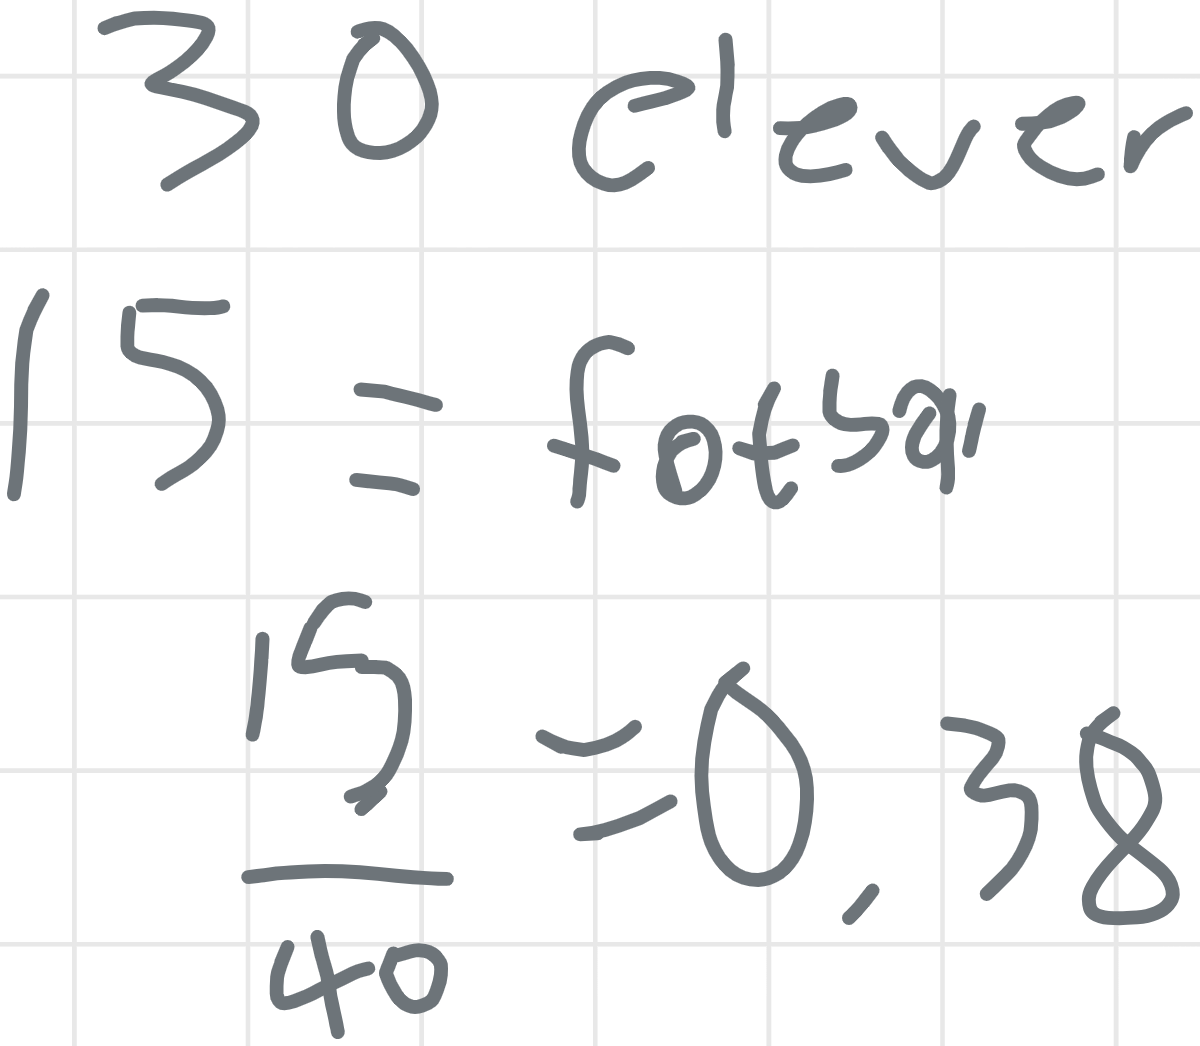 30 elever
15 = fotbal
15/40 = 0,38